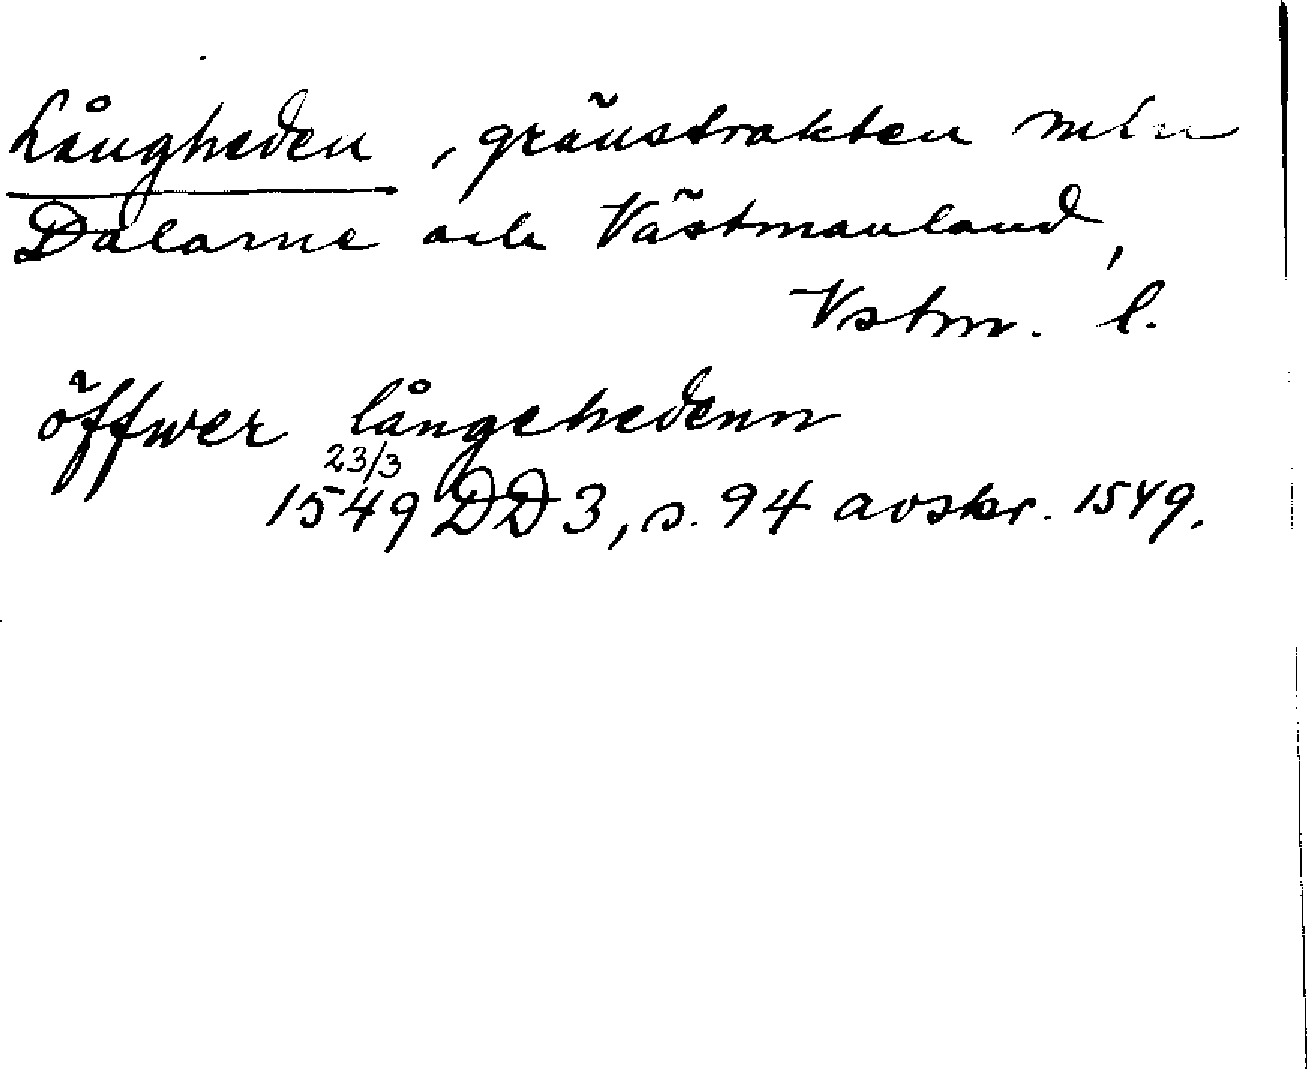 Långheden, gränstrakten mln
Dalarne och Västmanland,
Vstm. l.
öffwer långehedenn
23/3
1549 DD 3, s. 94 avskr. 1549.